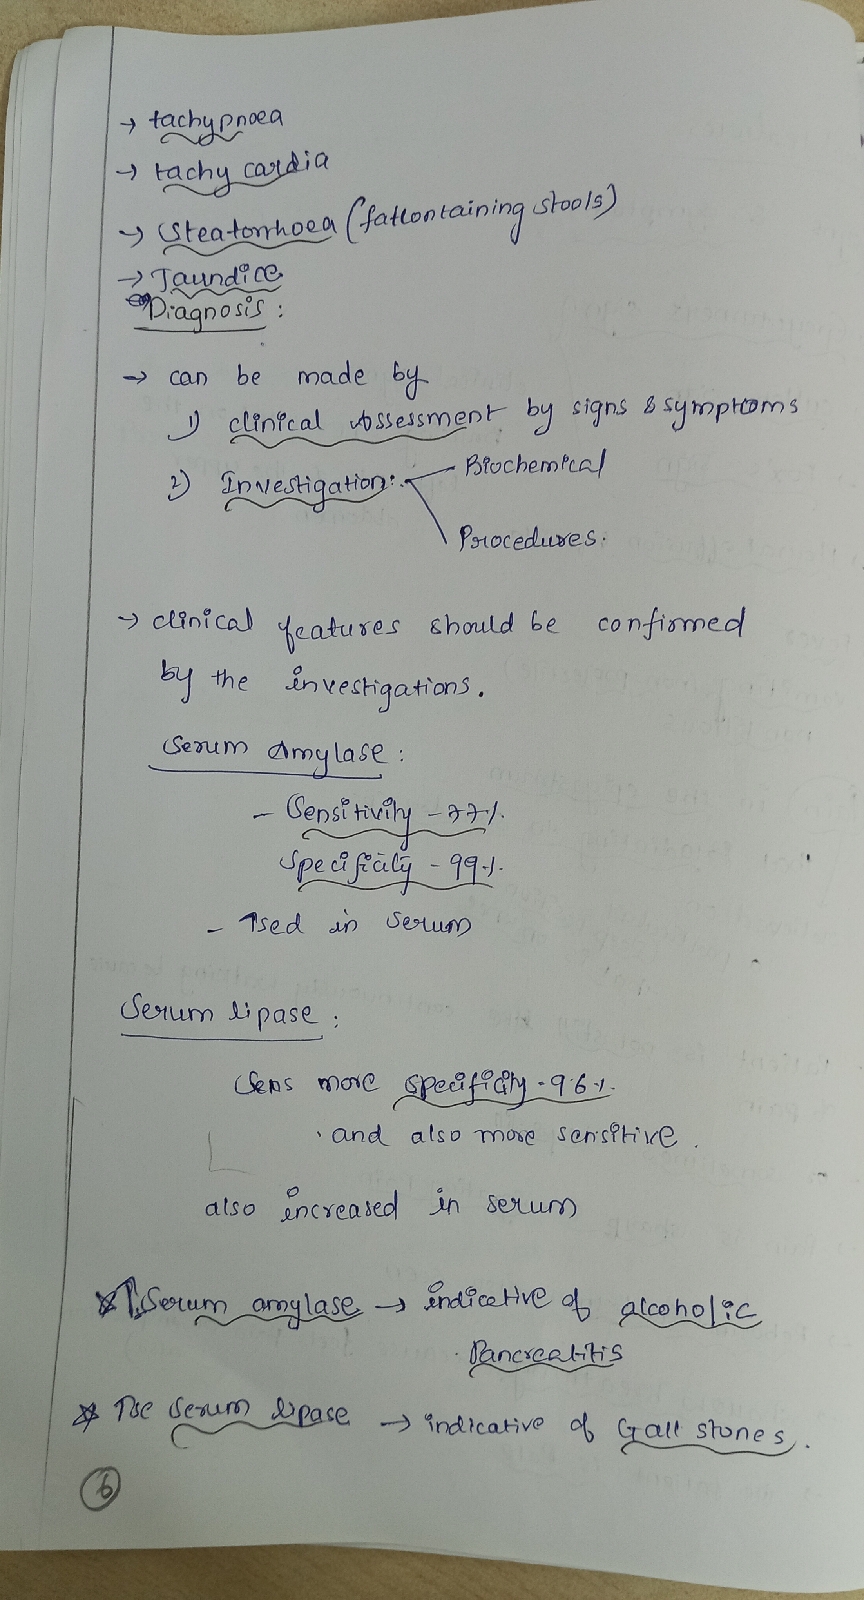 → tachypnoea
→ tachy cardia
→ Steatorrhoea (fat containing stools)
→ Jaundice
Diagnosis :
→ can be made by
1) clinical Assessment by signs & symptoms
2) Investigation: Biochemical
Procedures.
→ clinical features should be confirmed
by the investigations.
Serum Amylase :
- Sensitivity - 77%.
Specificity - 99%.
- ↑sed in serum
Serum lipase :
Sens more specificity - 96%.
and also more sensitive.
also increased in serum
* ↑ Serum amylase → indicative of alcoholic
Pancreatitis
* ↑se Serum lipase → indicative of Gall stones.
6